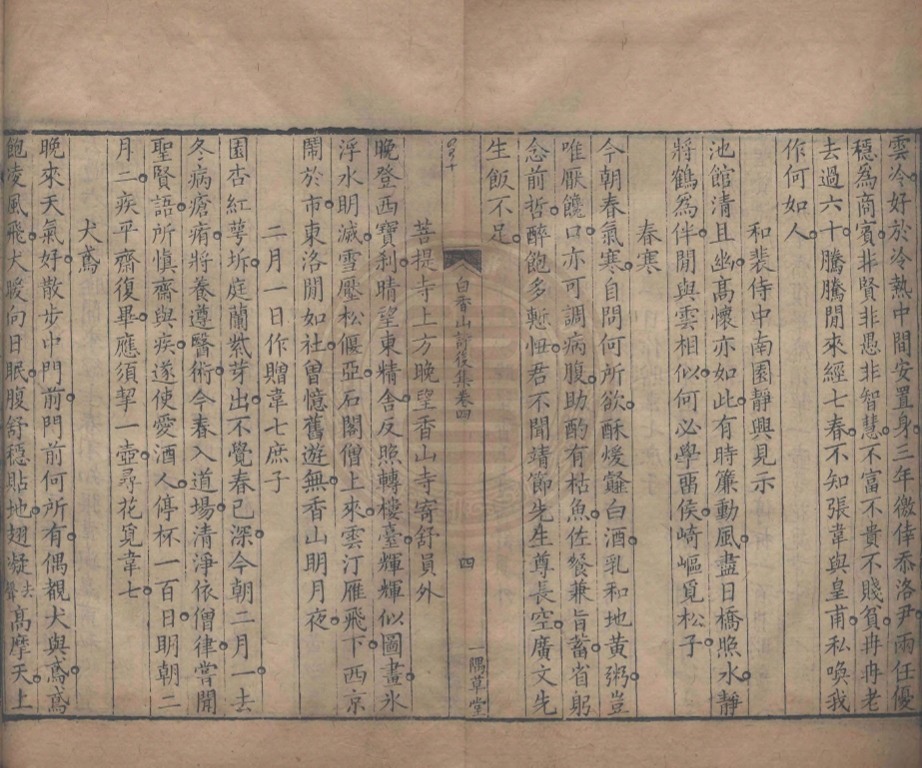 雲冷好於冷熱中間安置身三年徼倖忝洛尹兩任優
穩為商賓非賢非愚非智慧不富不貴不賤貧冉冉老
去過六十騰騰閒來經七春不知張韋與皇甫私喚我
作何如人
和裴侍中南園靜興見示
池館清且幽高懷亦如此有時簾動風盡日橋照水靜
將鶴為伴閒與雲相似何必學留侯崎嶇覓松子
春寒
今朝春氣寒自問何所欲酥煖薤白酒乳和地黃粥豈
唯厭饞口亦可調病腹助酌有枯魚佐餐兼旨蓄省躬
念前哲醉飽多慙忸君不聞靖節先生尊長空廣文先
生飯不足
白香山詩後集卷四
四
一隅草堂
菩提寺上方晚望香山寺寄舒員外
晚登西寶刹晴望東精舍反照轉樓臺輝輝似圖畫氷
浮水明滅雪壓松偃亞石閣僧上來雲汀雁飛下西京
鬧於市東洛閒如社曾憶舊遊無香山明月夜
二月一日作贈韋七庶子
園杏紅萼坼庭蘭紫芽出不覺春已深今朝二月一去
冬病瘡痏將養遵醫術今春入道場清淨依僧律嘗聞
聖賢語所慎齋與疾遂使愛酒人停杯一百日明朝二
月二疾平齋復畢應須挈一壺尋花覓韋七
犬鳶
晚來天氣好散步中門前門前何所有偶覩犬與鳶鳶
飽凌風飛犬暖向日眠腹舒穩貼地翅凝去聲高摩天上